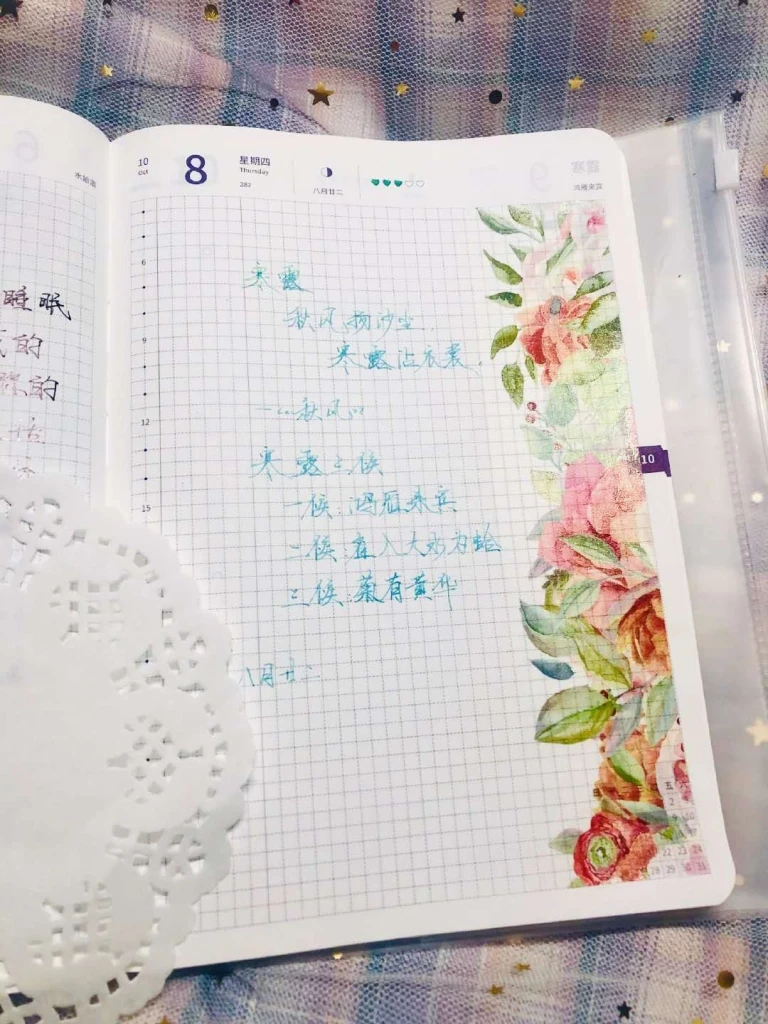 10
Oct
8
星期四
Thursday
282
八月廿二
寒露
鸿雁来宾
水哈
6
9
12
15
睡眠
的
的
寒露
秋风扬沙尘,
寒露沾衣裳.
一《秋风》
寒露三候
一候:鸿雁来宾
二候:雀入大水为蛤
三候:菊有黄华
八月廿二
10
五 六
2
9 10
22 23 24
28 29 30 31